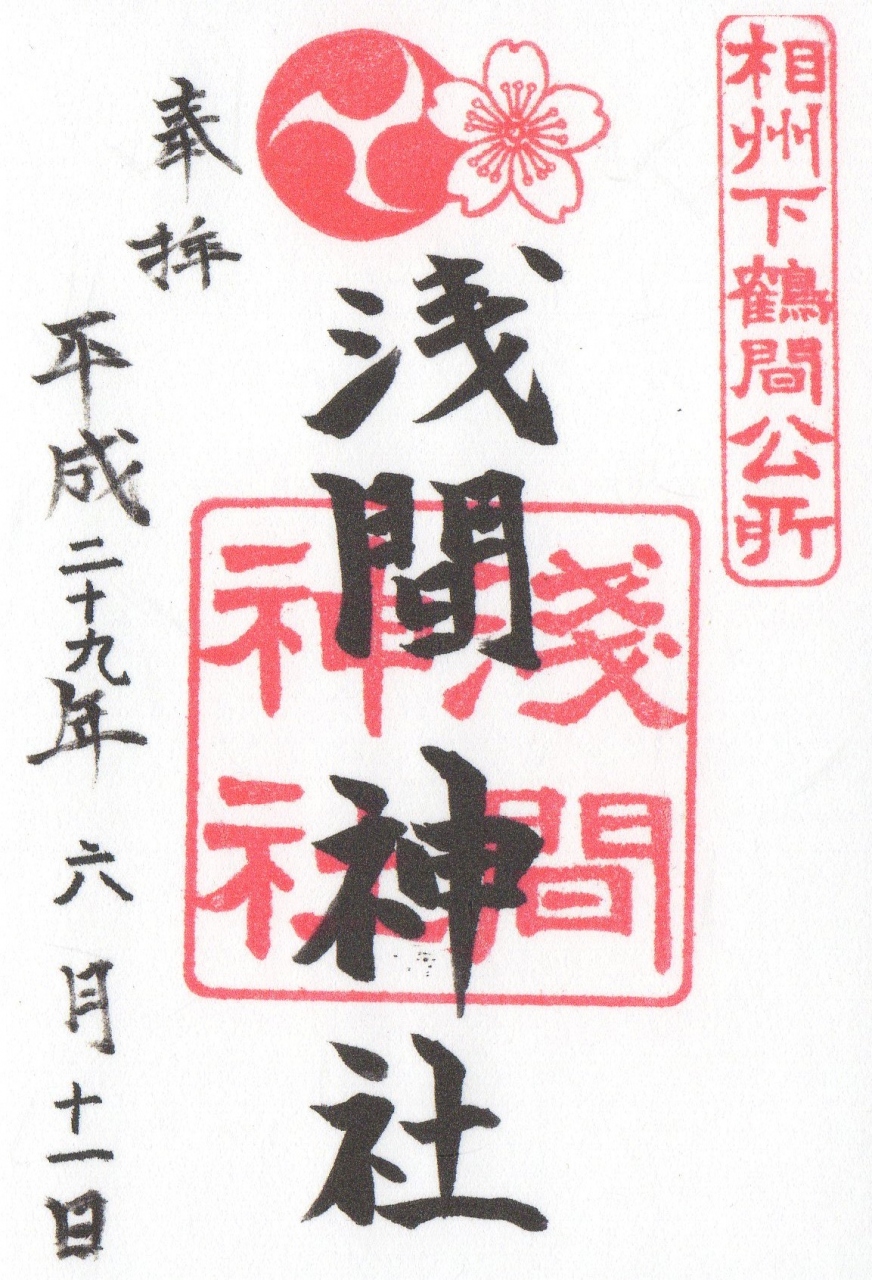 相州下鶴間公所
浅間神社
淺間
神社
奉拝
平成二十九年六月十一日